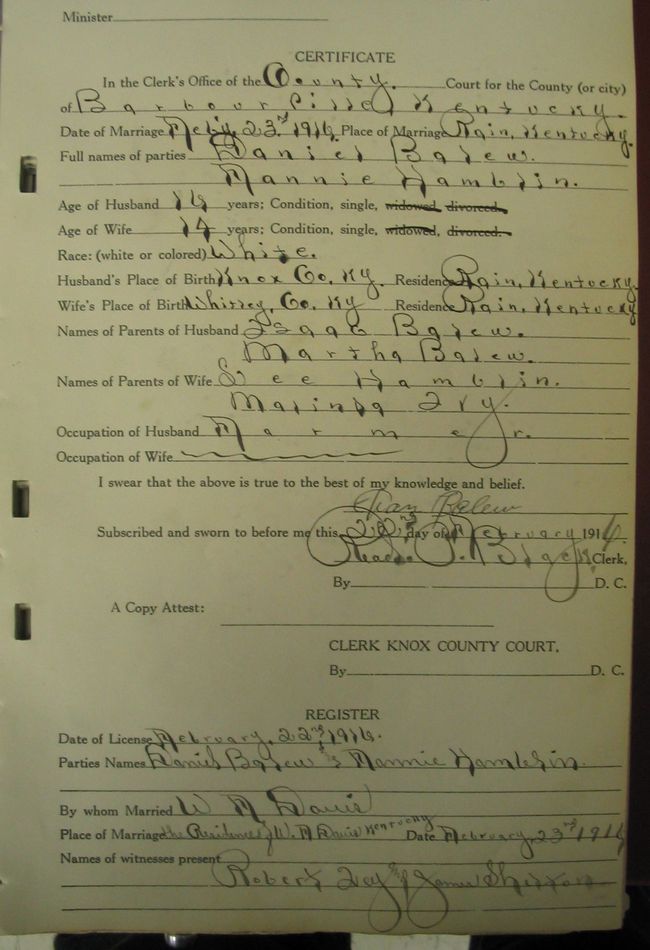 Minister
CERTIFICATE
In the Clerk's Office of the County. Court for the County (or city)
of Barbourville, Kentucky.
Date of Marriage Feb'y. 23rd 1916. Place of Marriage Rain, Kentucky.
Full names of parties Daniel Balew.
Nannie Hamblin.
Age of Husband years; Condition, single, widowed, divorced.
Age of Wife years; Condition, single, widowed, divorced.
Race: (white or colored) White.
Husband's Place of Birth Knox Co, Ky. Residence Rain, Kentucky.
Wife's Place of Birth Whitley, Co, Ky Residence Rain, Kentucky
Names of Parents of Husband Isaac Balew.
Martha Balew.
Names of Parents of Wife Lee Hamblin.
Malinda Ivy.
Occupation of Husband Farmer.
Occupation of Wife
I swear that the above is true to the best of my knowledge and belief.
Balew
Subscribed and sworn to before me this 22nd day of February 1916.
Read P. Clerk,
By D. C.
A Copy Attest:
CLERK KNOX COUNTY COURT.
By D. C.
REGISTER
Date of License February, 22nd 1916.
Parties Names Daniel Balew & Nannie Hamblin.
By whom Married W M Davis
Place of Marriage the Residence of W. M Davis Kentucky Date February, 23rd 1916
Names of witnesses present
Robert & James